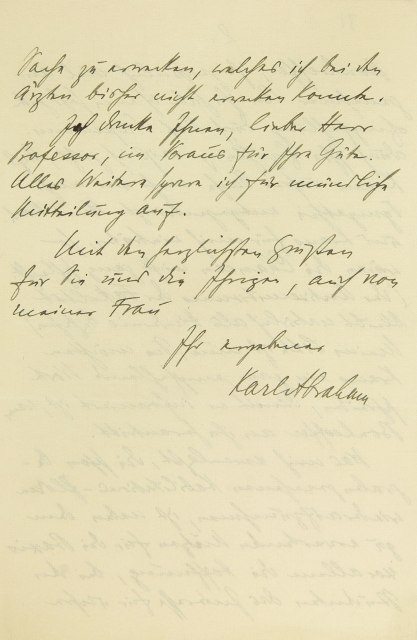 Sache zu erwecken, welches ich bei den
Ärzten bisher nicht erwecken konnte.
Ich danke Ihnen, lieber Herr
Professor, im Voraus für Ihre Güte.
Alles Weitere spare ich für mündliche
Mitteilung auf.
Mit den herzlichsten Grüßen
für Sie und die Ihrigen, auch von
meiner Frau
Ihr ergebener
Karl Abraham